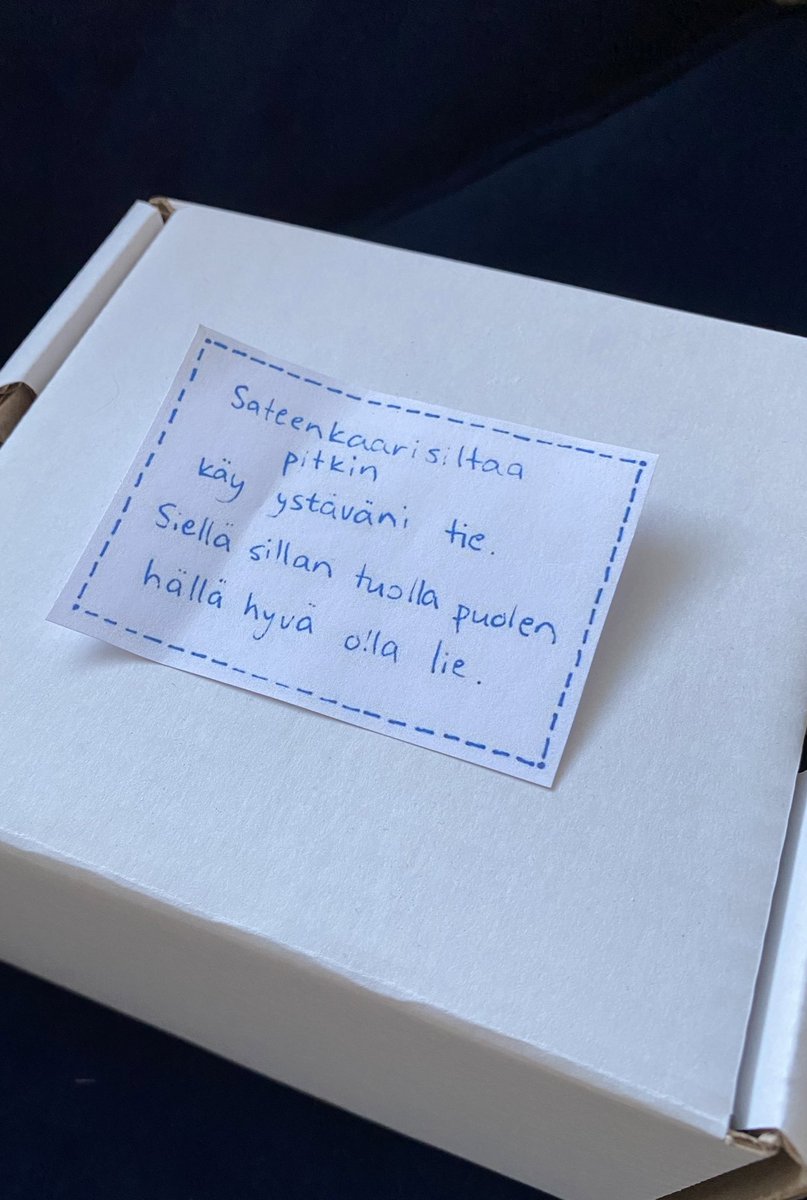 Sateenkaarisiltaa
pitkin
käy ystäväni tie.
Siellä sillan tuolla puolen
hällä hyvä olla lie.